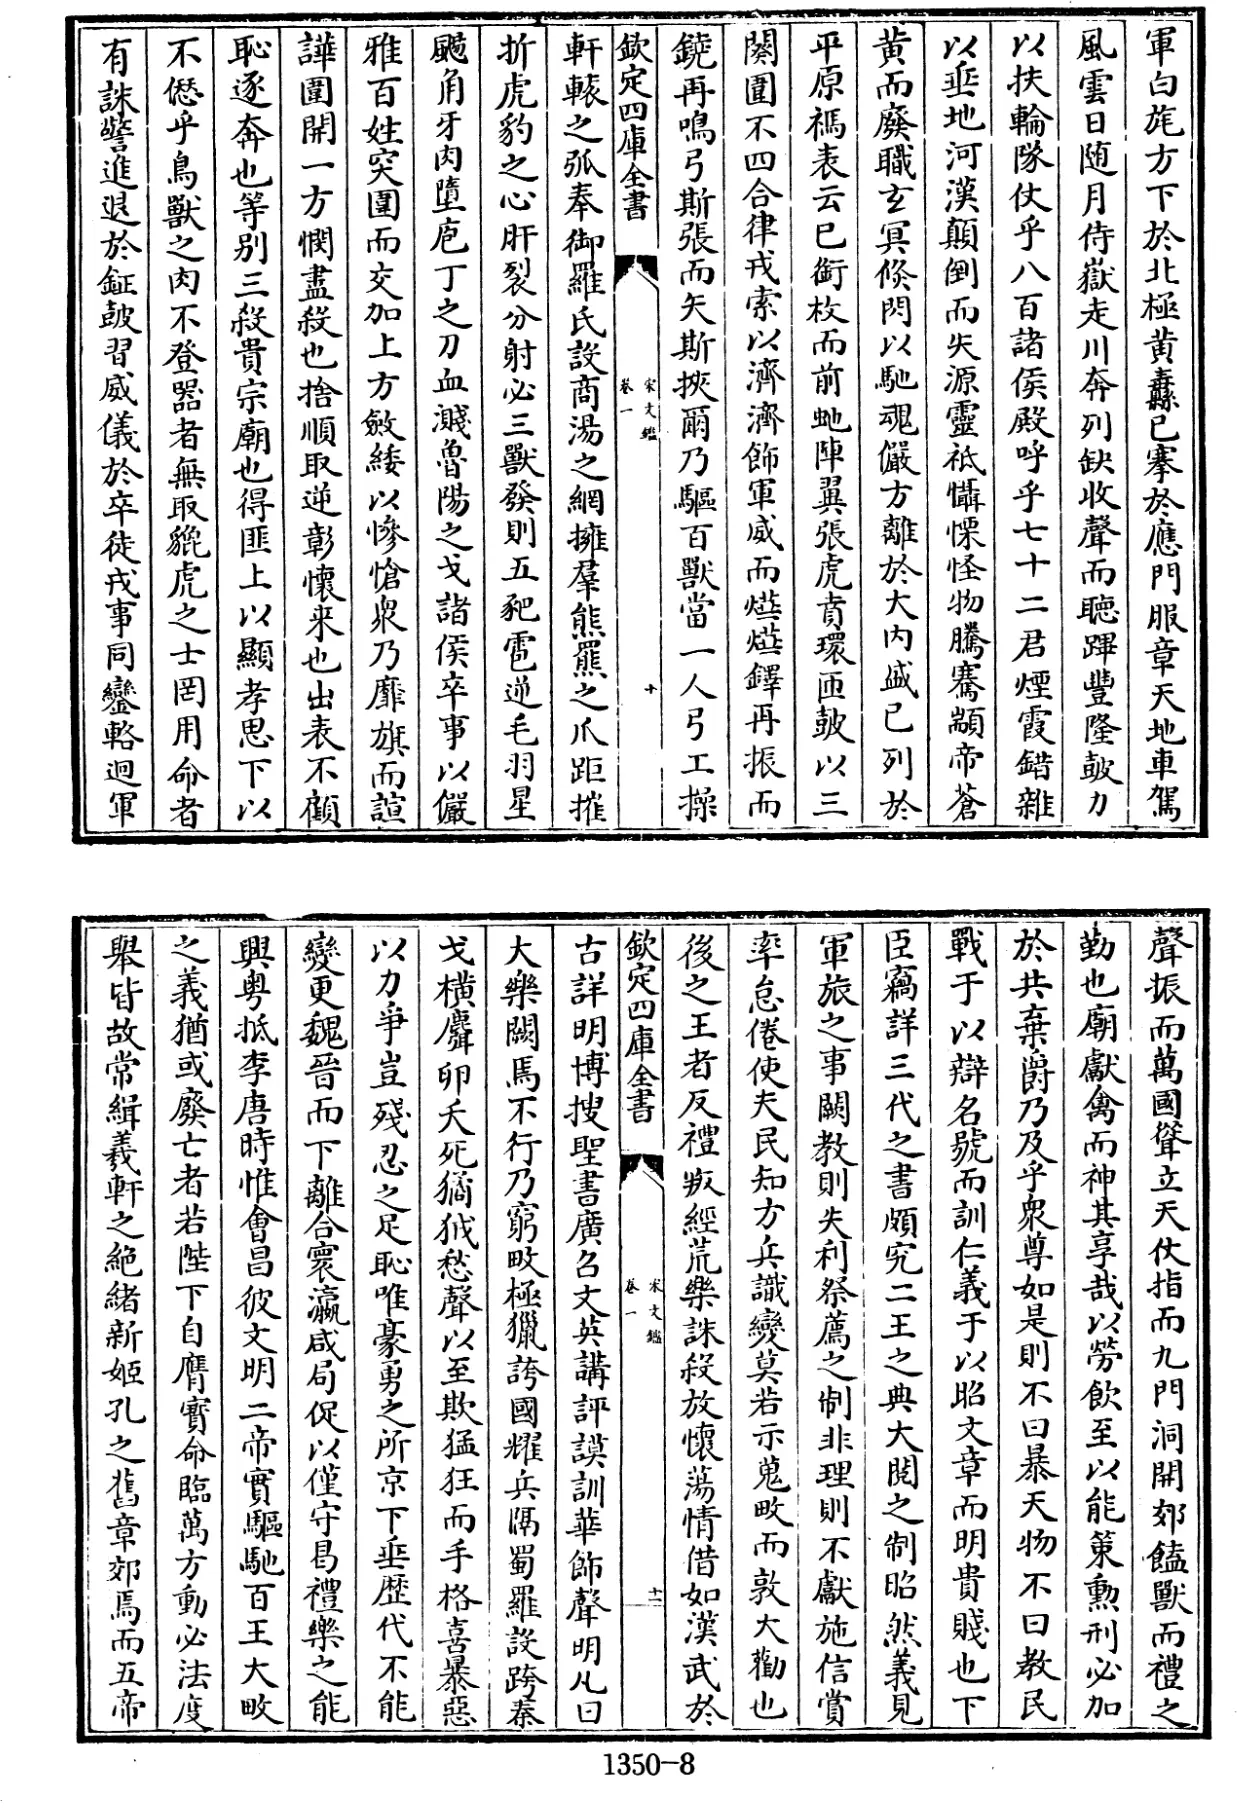 軍白旄方下於北極黄纛已搴於應門服章天地車駕
風雲日随月侍嶽走川奔列缺收聲而聽蹕豐隆鼓力
以扶輪隊仗乎八百諸侯殿呼乎七十二君煙霞錯雜
以垂地河漢顛倒而失源靈祇懾慄怪物騰騫顓帝蒼
黄而廢職玄冥倐閃以馳魂儼方離於大内㦿已列於
平原禡表云已銜枚而前虵陣翼張虎賁環匝鼓以三
闋圍不四合律戎索以濟濟飾軍威而㷸㷸鐸再振而
鐃再鳴弓斯張而矢斯挾爾乃驅百獸當一人弓工操
欽定四庫全書
宋文鑑
卷一
十
軒轅之弧奉御羅氏設商湯之網擁羣熊羆之爪距摧
折虎豹之心肝裂分射必三獸發則五豝雹逆毛羽星
颺角牙肉墮庖丁之刀血濺魯陽之戈諸侯卒事以儼
雅百姓突圍而交加上方斂緌以慘愴衆乃靡旗而諠
譁圍開一方憫盡殺也捨順取逆彰懷来也出表不顧
恥逐奔也等别三殺貴宗廟也得匪上以顯孝思下以
不僁乎鳥獸之肉不登器者無取貔虎之士罔用命者
有誅警進退於鉦鼓習威儀於卒徒戎事同鑾輅迴軍
聲振而萬國聳立天仗指而九門洞開郊饁獸而禮之
勤也廟獻禽而神其享哉以勞飲至以能策勲刑必加
於共棄爵乃及乎衆尊如是則不曰暴天物不曰教民
戰于以辯名號而訓仁義于以昭文章而明貴賤也下
臣竊詳三代之書頗究二王之典大閲之制昭然義見
軍旅之事闕教則失利祭薦之制非理則不獻施信賞
率怠倦使夫民知方兵識變莫若示蒐畋而敦大勸也
後之王者反禮叛經荒樂誅殺放懷蕩情借如漢武於
欽定四庫全書
宋文鑑
卷一
十一
古詳明博搜聖書廣召文英講評謨訓華飾聲明凡曰
大樂闕焉不行乃窮畋極獵誇國耀兵隔蜀羅設跨秦
戈横麛卵夭死獝狘愁聲以至欺猛狂而手格喜暴惡
以力爭豈殘忍之足恥唯豪勇之所京下垂歷代不能
變更魏晉而下離合寰瀛咸局促以僅守曷禮樂之能
興粤抵李唐時惟會昌彼文明二帝實驅馳百王大畋
之義猶或廢亡者若陛下自膺寳命臨萬方動必法度
舉皆故常緝羲軒之絶緒新姬孔之舊章郊焉而五帝
1350-8